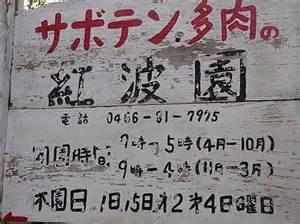 サボテン多肉の
紅波園
電話 0466-81-7975
開園時間 7時〜5時(4月-10月)
9時〜4時(11月-3月)
休園日 1日.15日.オ2オ4日曜日